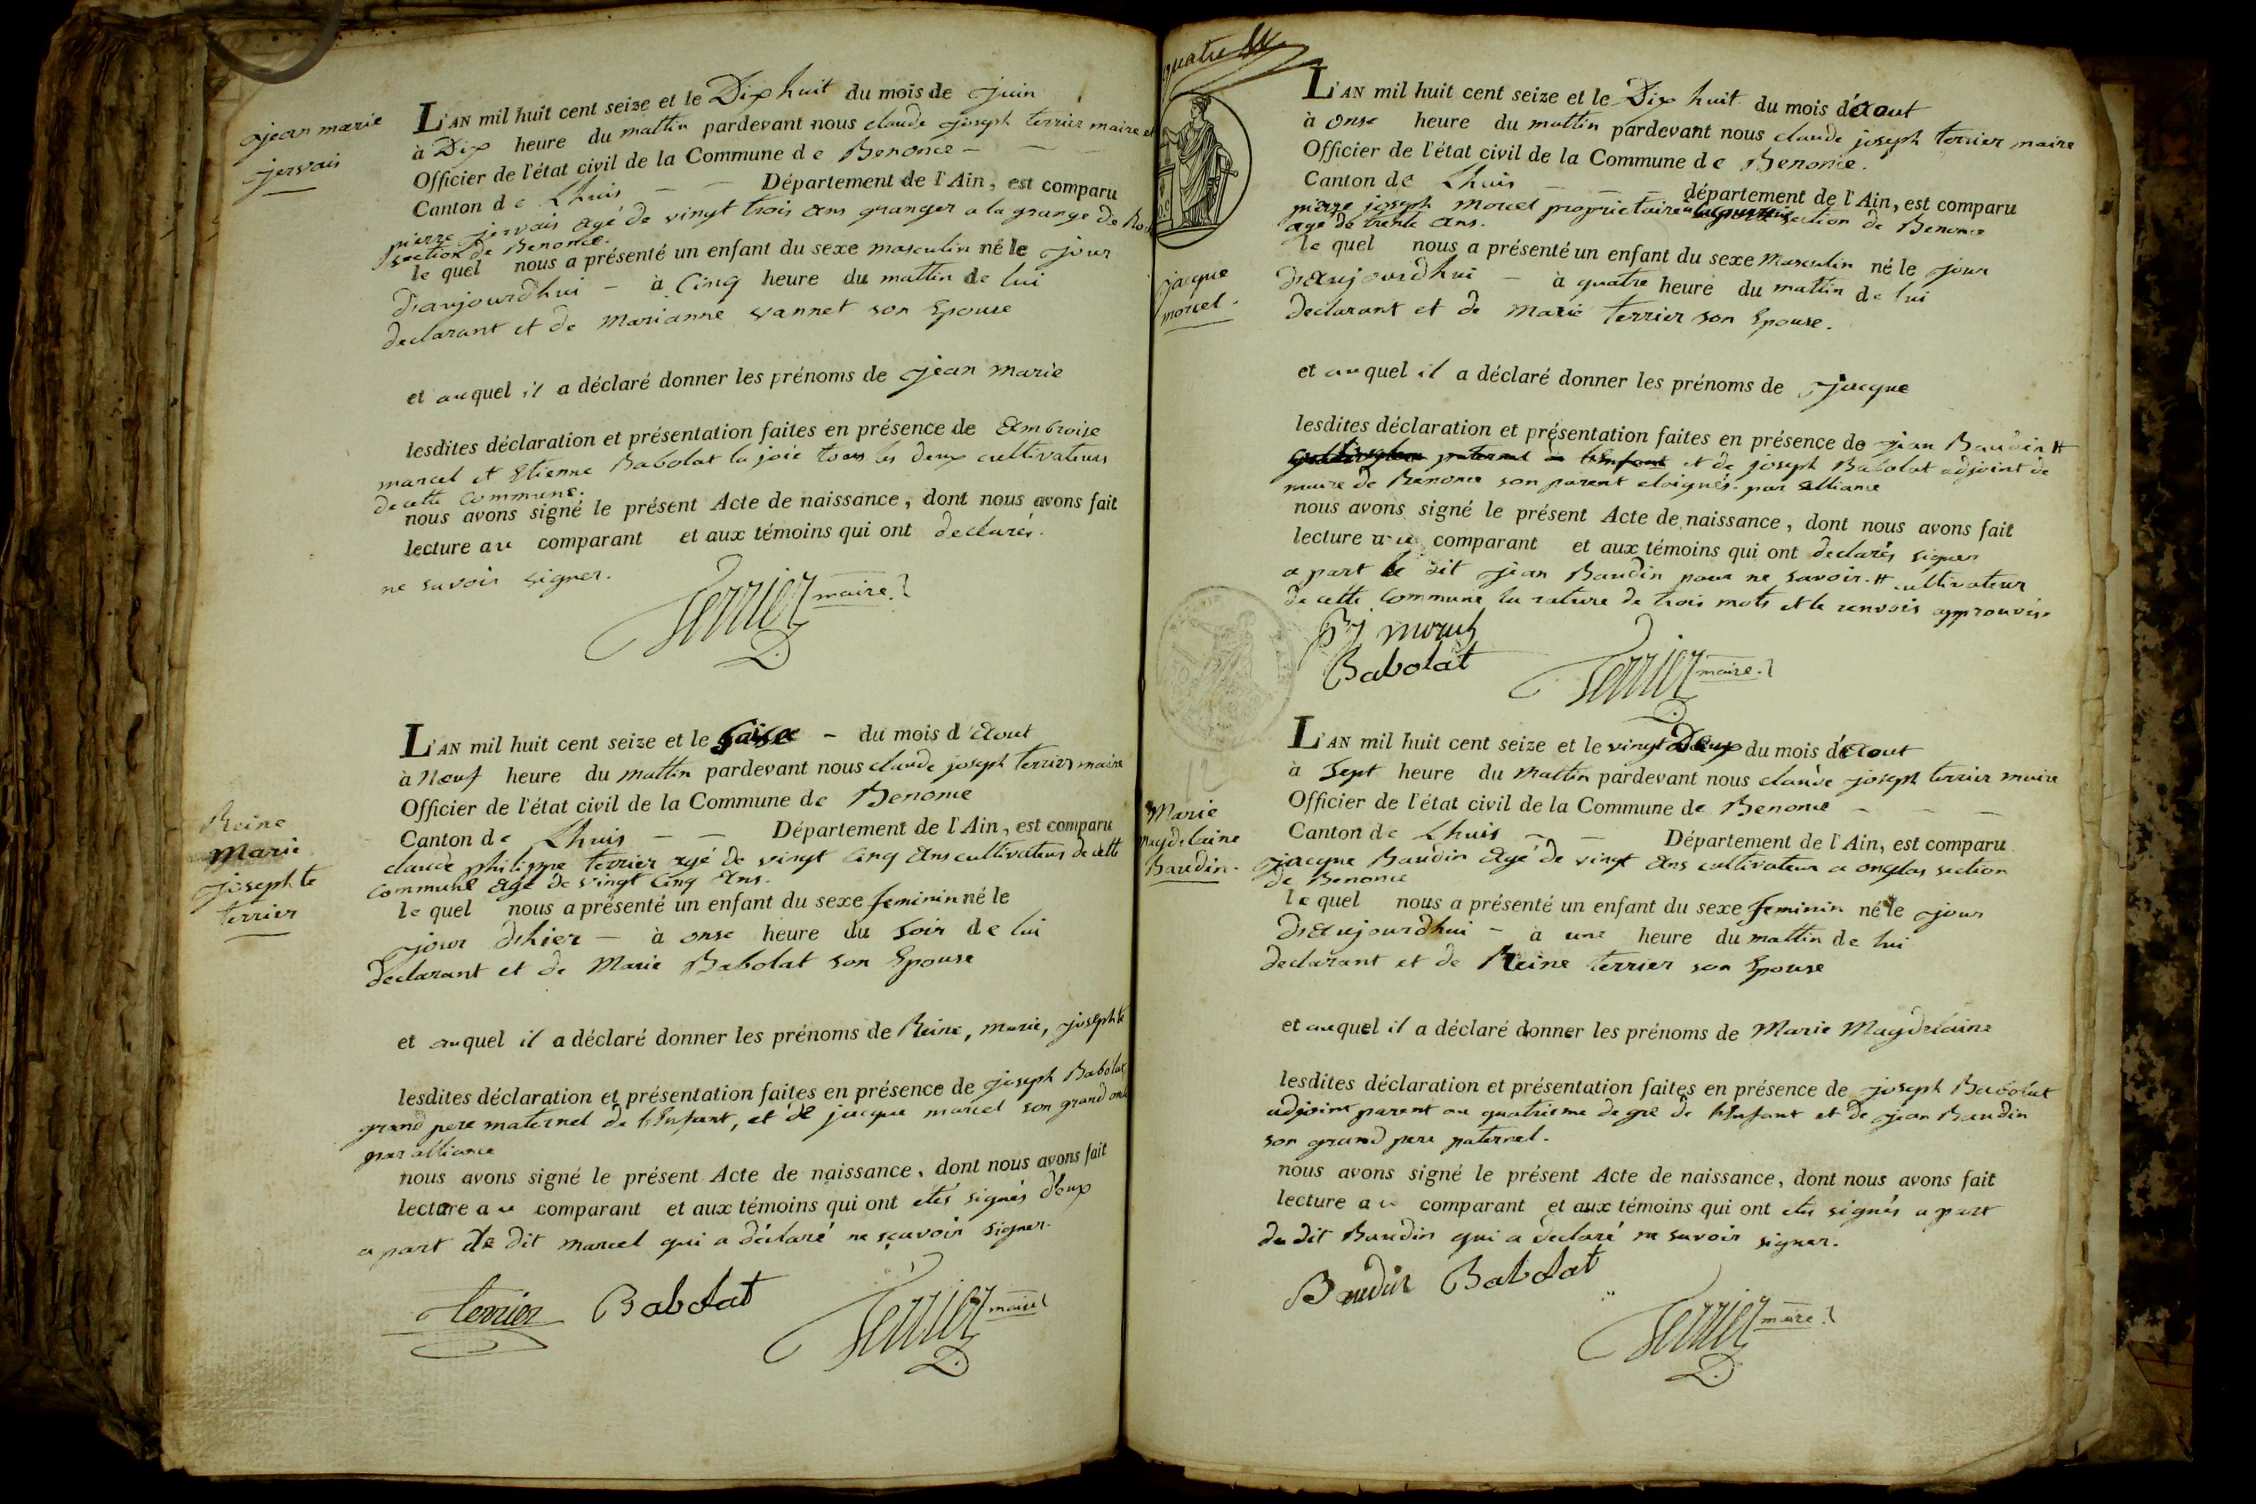 jean marie
jervais
L'AN mil huit cent seize et le Dix huit du mois de juin
à Dix heure du mattin pardevant nous claude joseph terrier maire et
Officier de l'état civil de la Commune de Benonce
Canton de Lhuis Département de l'Ain, est comparu
pierre jervais agé de vingt trois ans granger a la grange de
section de Benonce.
le quel nous a présenté un enfant du sexe masculin né le jour
d'aujourdhui à Cinq heure du mattin de lui
declarant et de Marianne vannet son Epouse
et auquel il a déclaré donner les prénoms de jean marie
lesdites déclaration et présentation faites en présence de Ambroise
marcel et Etienne Babolat la joie tous les deux cultivateurs
de cette Commune.
nous avons signé le présent Acte de naissance, dont nous avons fait
lecture au comparant et aux témoins qui ont declarés.
ne savoir signer.
Terrier maire
Reine
Marie
josephte
terrier
L'AN mil huit cent seize et le Saise du mois d'Aout
à Neuf heure du mattin pardevant nous claude joseph terrier maire
Officier de l'état civil de la Commune de Benonce
Canton de Lhuis Département de l'Ain, est comparu
claude philippe terrier agé de vingt Cinq Ans cultivateur de cette
Commune agé de vingt Cinq Ans.
le quel nous a présenté un enfant du sexe feminin né le
jour d'hier à onse heure du soir de lui
declarant et de Marie Babolat son Epouse
et auquel il a déclaré donner les prénoms de Reine, marie, josephte
lesdites déclaration et présentation faites en présence de joseph Babolat
grand pere maternel de l'Enfant, et de jacque marcel son grand oncle
par alliance
nous avons signé le présent Acte de naissance, dont nous avons fait
lecture au comparant et aux témoins qui ont etés signés d'eux
a part le dit marcel qui a déclaré ne sçavoir signer.
terrier Babolat Terrier maire
quatre
jacque
morcel.
L'AN mil huit cent seize et le Dix huit du mois d'Aout
à onse heure du mattin pardevant nous claude joseph terrier maire
Officier de l'état civil de la Commune de Benonce.
Canton de Lhuis département de l'Ain, est comparu
pierre joseph morcel proprietaire section de Benonce
agé de trente ans.
le quel nous a présenté un enfant du sexe Masculin né le jour
d'aujourdhui à quatre heure du mattin de lui
declarant et de Marie terrier son Epouse.
et auquel il a déclaré donner les prénoms de jacque
lesdites déclaration et présentation faites en présence de jean Baudin #
paternel de l'Enfant et de joseph Babolat adjoint de
maire de Benonce son parent eloignés par alliance
nous avons signé le présent Acte de naissance, dont nous avons fait
lecture au comparant et aux témoins qui ont declarés signer
a part le dit jean Baudin pour ne savoir. # cultivateur
de cette Commune la rature de trois mots et le renvois approuvés
Pj morcel
Babolat Terrier maire.
12
Marie
magdelaine
Baudin.
L'AN mil huit cent seize et le vingt Deux du mois d'Aout
à Sept heure du Mattin pardevant nous claude joseph terrier maire
Officier de l'état civil de la Commune de Benonce
Canton de Lhuis Département de l'Ain, est comparu
jacque Baudin agé de vingt Ans cultivateur a onglas section
de Benonce
le quel nous a présenté un enfant du sexe feminin né le jour
d'aujourdhui à une heure du mattin de lui
declarant et de Reine terrier son Epouse
et auquel il a déclaré donner les prénoms de Marie Magdelaine
lesdites déclaration et présentation faites en présence de joseph Babolat
adjoint parent au quatrieme degré de l'Enfant et de jean Baudin
son grand pere paternel.
nous avons signé le présent Acte de naissance, dont nous avons fait
lecture au comparant et aux témoins qui ont etes signés a part
du dit Baudin qui a declaré ne savoir signer.
Baudin Babolat
Terrier maire